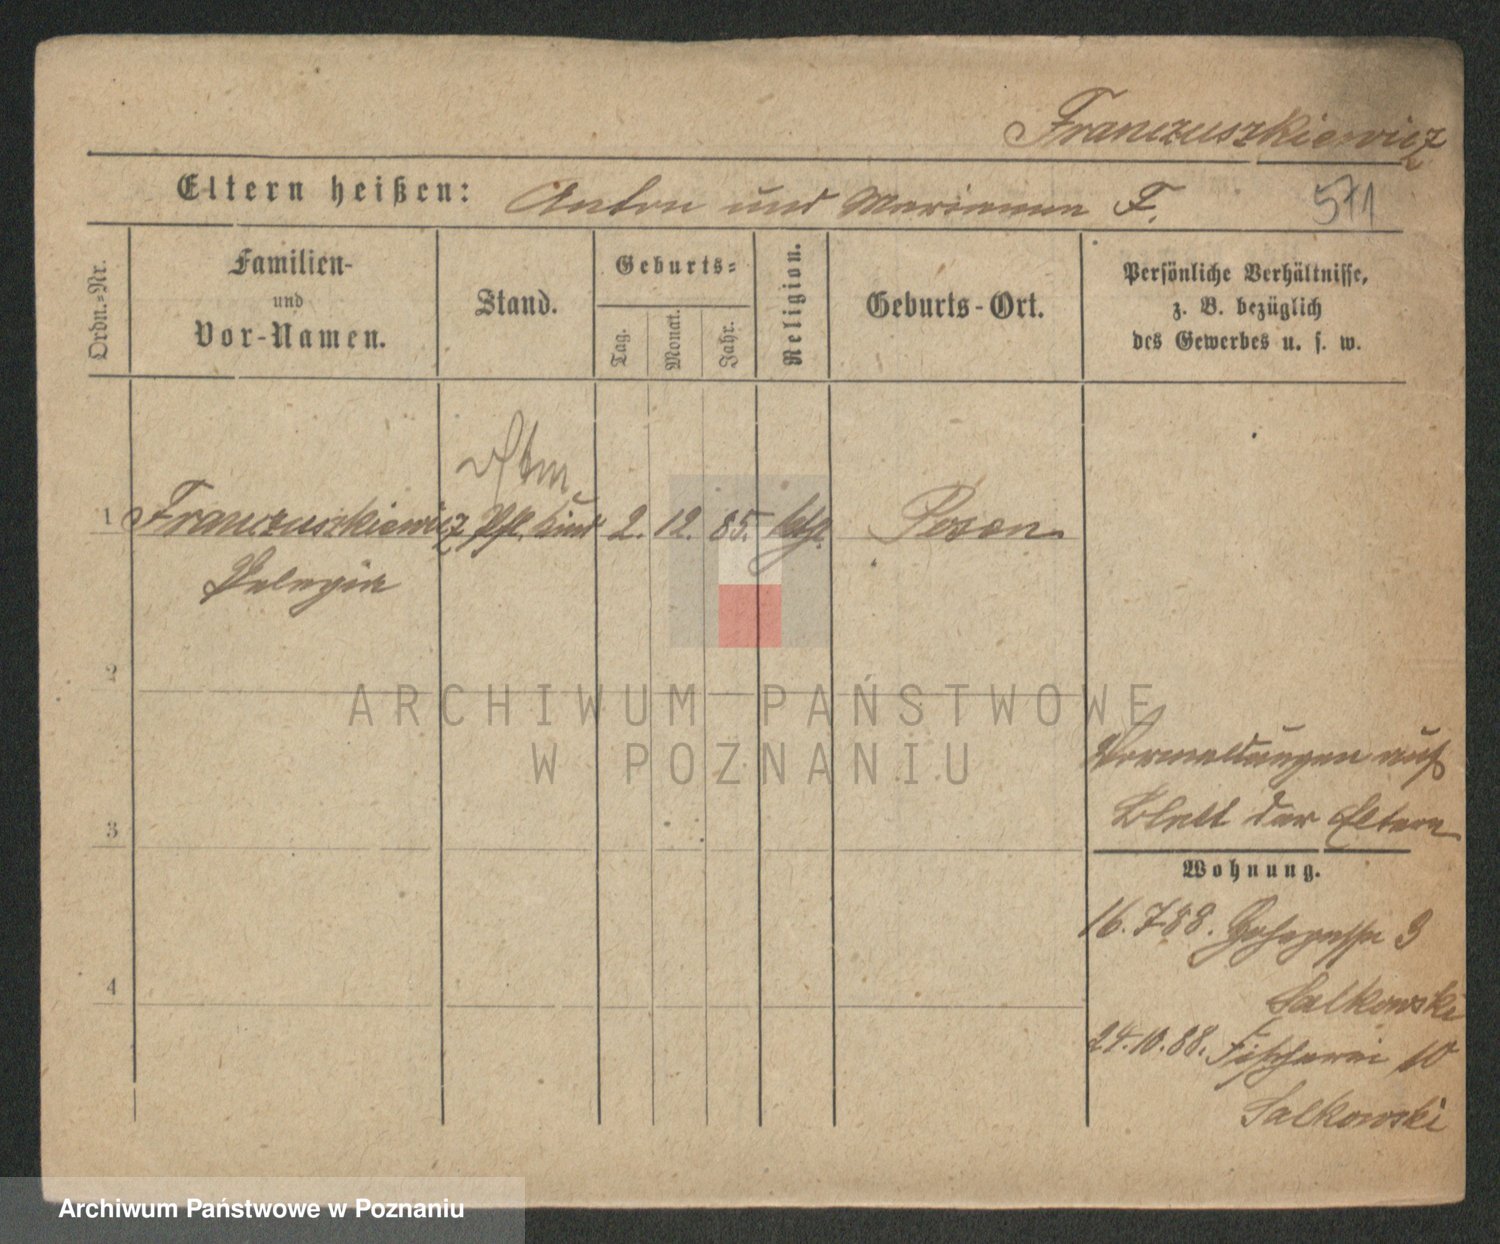 Franczuszkiewicz
Eltern heißen: Anton und Marianna F.
571
Ordn.=Nr.
Familien-
und
Vor-Namen.
Stand.
Geburts=
Tag.
Monat.
Jahr.
Religion.
Geburts-Ort.
Persönliche Verhältnisse,
z. B. bezüglich
des Gewerbes u. s. w.
1 Franczuszkiewicz Pfl. Kind 2. 12. 85. kath. Posen
Pelagia
2
3
4
Vormeldungen auf
Blatt der Eltern
Wohnung.
16.7 88. 3
Salkowski
24.10.88. Fischerei 10
Salkowski
ARCHIWUM PAŃSTWOWE
W POZNANIU
Archiwum Państwowe w Poznaniu